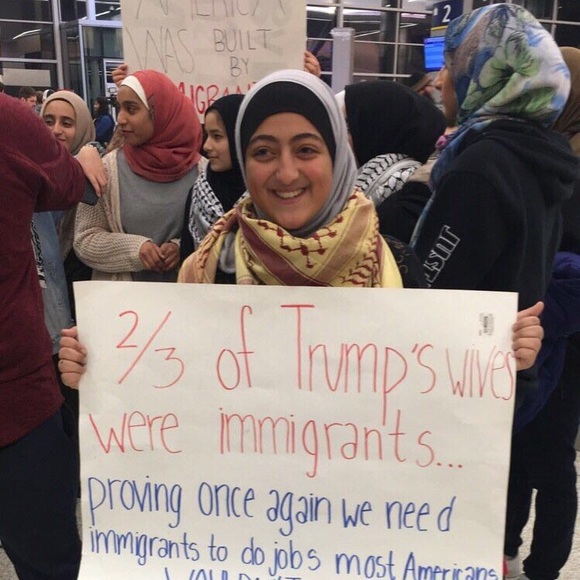 AMERICA
WAS BUILT
BY
IMMIGRANTS
2
2/3 of Trump's wives
were immigrants...
proving once again we need
immigrants to do jobs most Americans
WOULDN'T